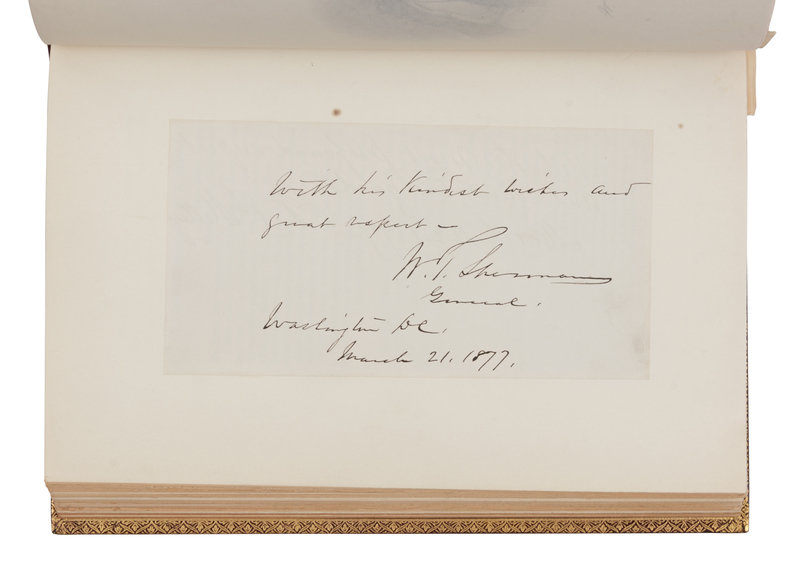 With his Kindest Wishes and
great respect –
W. T. Sherman
General.
Washington DC.
March 21. 1877.